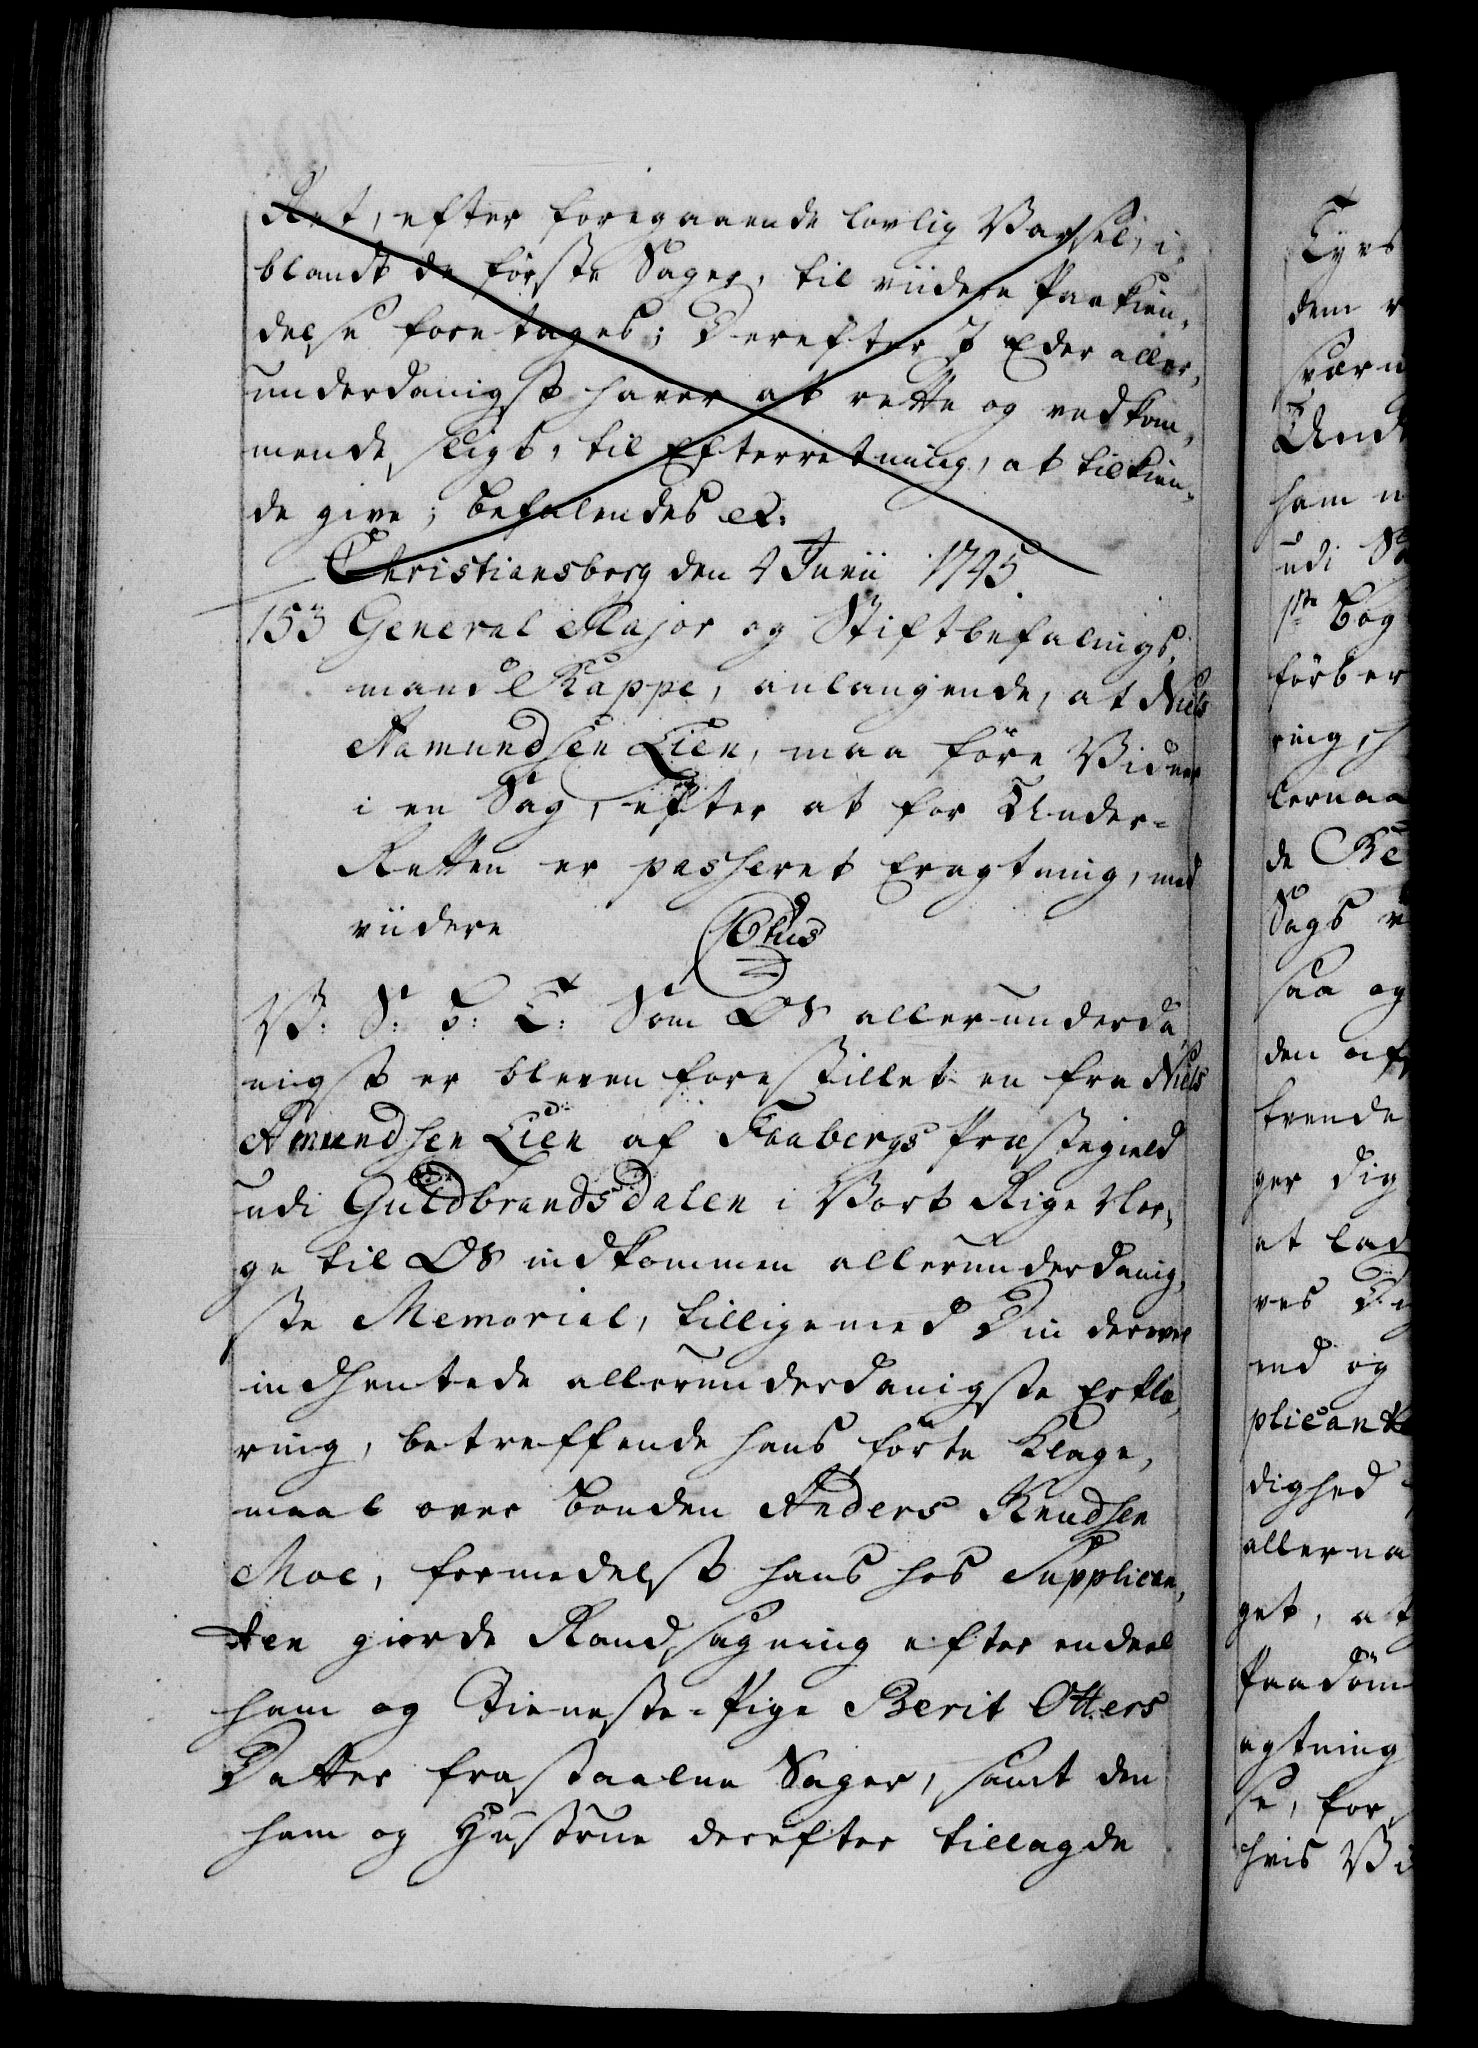 Ret, efter foregaaende lovlig Varsel, i,
blandt de förste Sager, til viidere Paakien,
delse foretages; Derefter I Eder aller,
underdanigst haver at rette og vedkom,
mende sligt, til Efterretning, at tilkien,
de give; befalendes etc:
Christiansborg den 4 Junii 1745.
153 General Major og Stiftbefalings,
mand Rappe, anlangende, at Niels
Aamundsen Lien, maa före Vidner
i en Sag, efter at for Under-
Retten er passeret Eragtning, med
viidere
V: S: G: T: Som OS allerunderda,
nigst er bleven forestillet en fra Niels
Amundsen Lien af Faabergs Præstegield
udi Guldbrandsdalen i Vort Rige Nor,
ge til OS indkommen allerunderdanig,
ste Memorial, tilligemed Din derover
indhentede allerunderdanigste Erklæ,
ring, betreffende hans förte Klage,
maal over bonden Anders Knudsen
Moe, formedelst hans hos Supplican,
ten giorde Randsagning efter endeel
ham og Tieneste-Pige Berit Otters
Datter frastaalne Sager, samt den
ham og Hustrue derefter tillagde
Tyvs
dem
svær
Und
ham
udi
1ste Bog
förb
ring,
lernaa
de
Sags
saa og
den af
trende
ger dig
at lad
ves
end og
plicant
dighed
allerna
get, at
Paadöm
agtning
se, for
hvis Vi